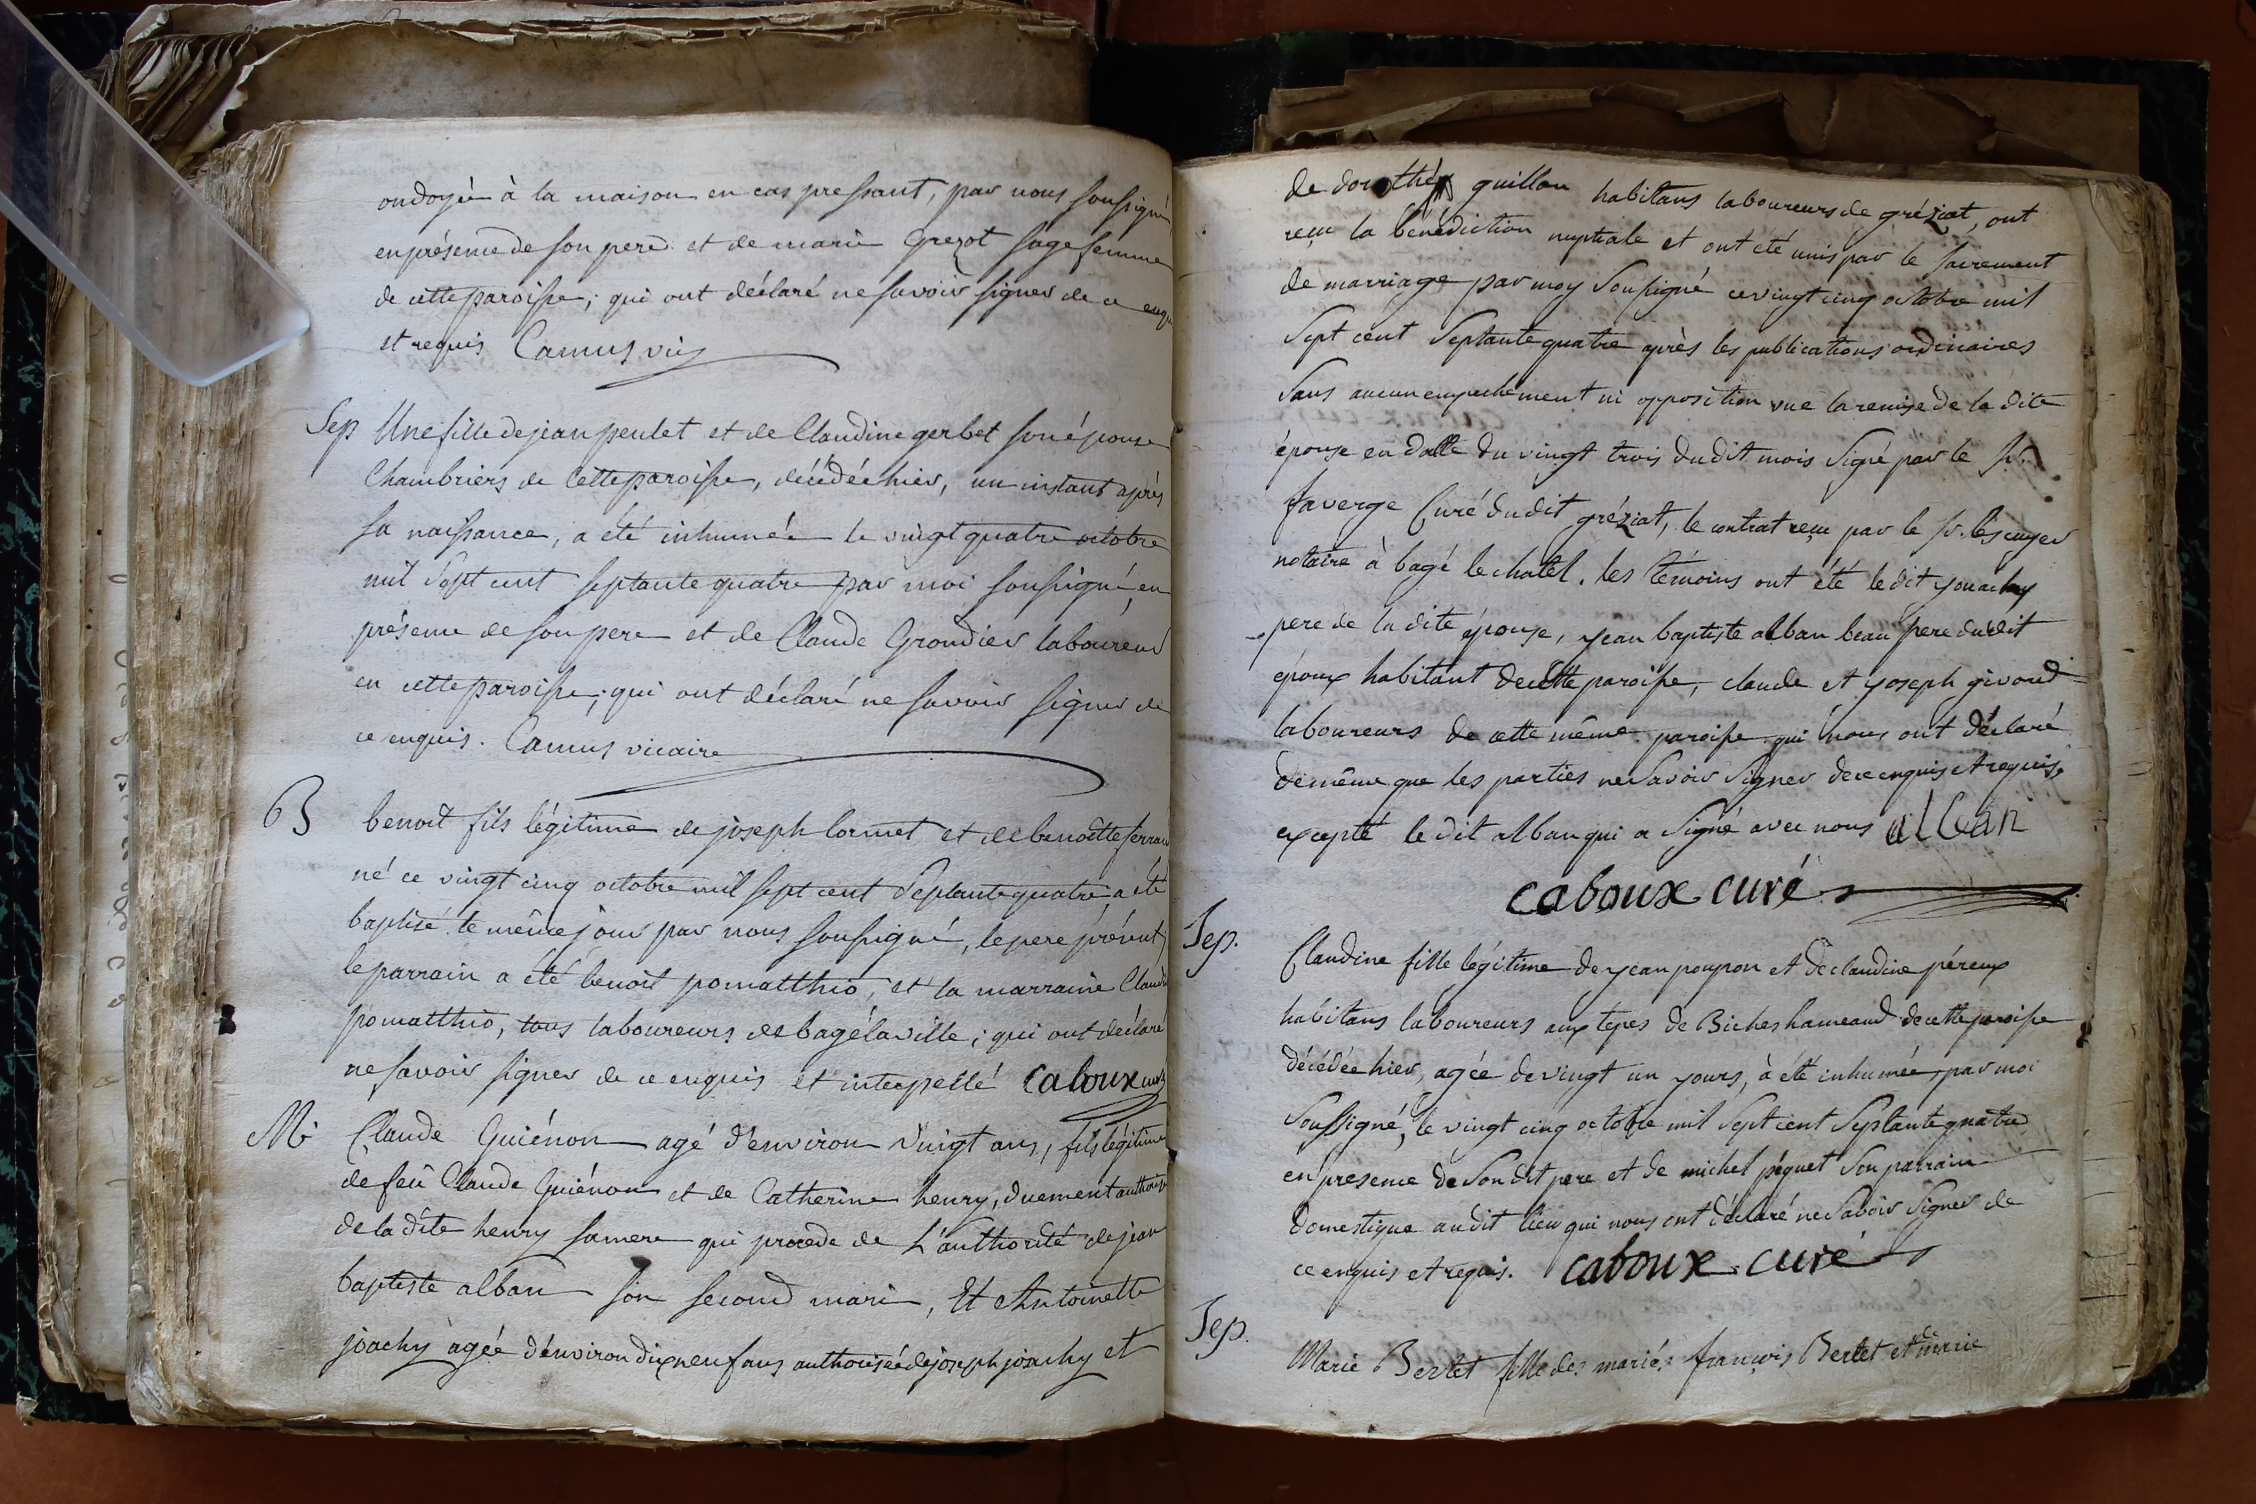 ondoyée à la maison en cas pressant, par nous soussigné
en présence de son pere et de marie Grezot sage femme
de cette paroisse; qui ont déclaré ne savoir signer de ce enquis
et requis Camus vic
Sep Une fille de jean peulet et de Claudine gerbet son épouse
Chambriers de cette paroisse, décédée hier, un instant après
sa naissance, a été inhumée le vingt quatre octobre
mil sept cent septante quatre par moi soussigné, en
présence de son pere et de Claude Grondier laboureur
en cette paroisse; qui ont déclaré ne savoir signer de
ce enquis. Camus vicaire
B benoit fils légitime de joseph lormet et de benoitte ferrau
né ce vingt cinq octobre mil sept cent Septante quatre, a été
baptisé le même jour par nous soussigné, le pere présent;
le parrain a été benoit pomatthio, et la marraine Claud
pomatthio, tous laboureurs de bagé la ville; qui ont déclaré
ne savoir signer de ce enquis et interpellé Caboux curé
M Claude Guiénon agé d'environ vingt ans, fils légitime
de feû Claude Guiénon et de Catherine henry, duement authorisé
de la dite henry sa mere qui procede de L'authorité de jean
baptiste alban son second mari, Et Antoinette
joachy agée d'environ dix neuf ans authorisée de joseph joachy et
de dorothée guillon habitans laboureurs de gréziat, ont
reçu la bénédiction nuptiale et ont été unis par le sacrement
de marriage par moy Soussigné ce vingt cinq octobre mil
Sept cent Septante quatre après les publications ordinaires
Sans aucun empechement ni opposition vue la remise de la dite
épouse en datte du vingt trois dudit mois Signé par le Sr.
faverge Curé dudit gréziat, le contrat reçu par le Sr.
notaire à bagé le chatel. les témoins ont été le dit yonachy
pere de la dite épouse, yean baptiste alban beau pere dudit
époux habitant de cette paroisse, claude et yoseph givord
laboureurs de cette même paroisse qui nous ont déclaré
de même que les parties ne Savoir Signer de ce enquis et requis,
excepté le dit alban qui a Signé avec nous alban
caboux curé
Sep. Claudine fille légitime de yean poupon et de claudine péreux
habitans laboureurs aux tepes de Biches hameaud de cette paroisse
décédée hier, agée de vingt un yours, à été inhumée, par moi
Soussigné, le vingt cinq octobre mil Sept cent Septante quatre
en presence de Son dit pere et de michel péquet Son parrain
domestique audit lieu qui nous ont déclaré ne Savoir Signer de
ce enquis et requis. caboux curé
Sep. Marie Bertet fille des mariés françois Bertet et de marie